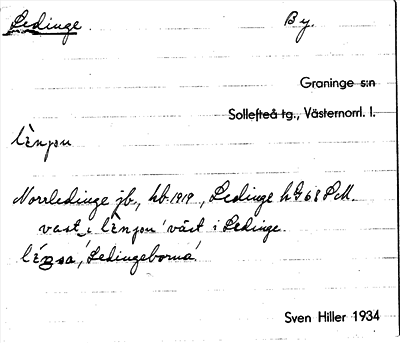 Ledinge. By.
Graninge s:n
Sollefteå tg., Västernorrl. l.
lènjɷn
Norrledinge jb., hb. 1919, Ledinge h D 68 S.M.
vast i lènjɷn 'väst i Ledinge.
'Ledingeborna'
Sven Hiller 1934